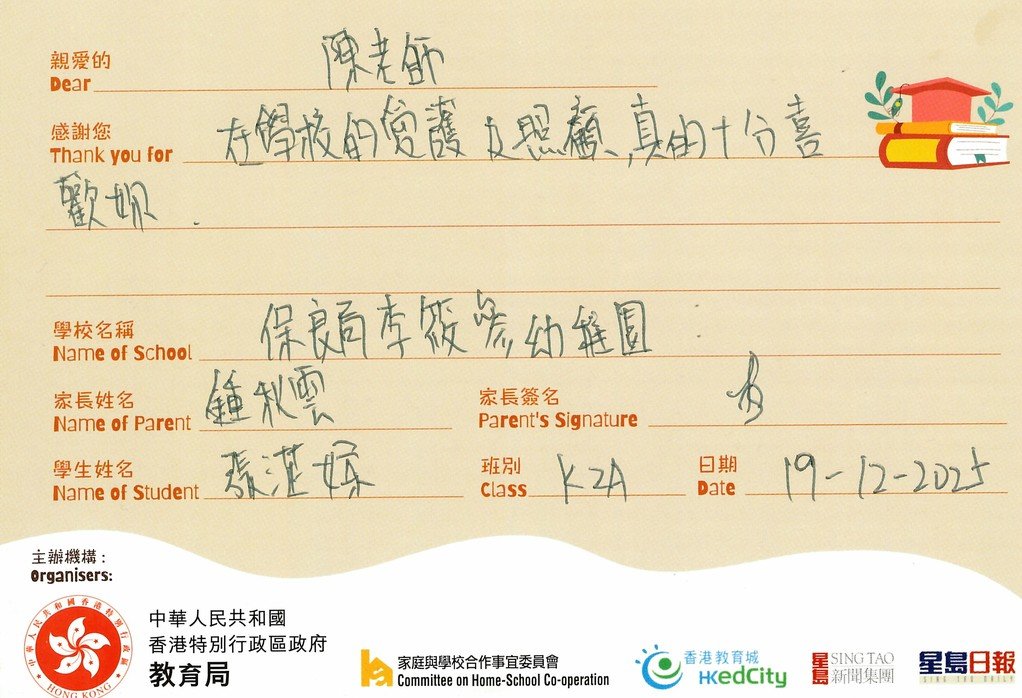 親愛的 陳老師
Dear
感謝您 在學校的愛護及照顧,真的十分喜
Thank you for
歡妳.
學校名稱 保良局李筱參幼稚園
Name of School
家長姓名 鍾秋雲 家長簽名
Name of Parent Parent's Signature
學生姓名 張湛嫇 班別 K2A 日期 19-12-2025
Name of Student Class Date
主辦機構:
Organisers:
中華人民共和國
香港特別行政區政府
教育局
中華人民共和國香港特別行政區
HONG KONG
家庭與學校合作事宜委員會
Committee on Home-School Co-operation
香港教育城
HKedCity
星島 SING TAO
新聞集團
星島日報
SING TAO DAILY